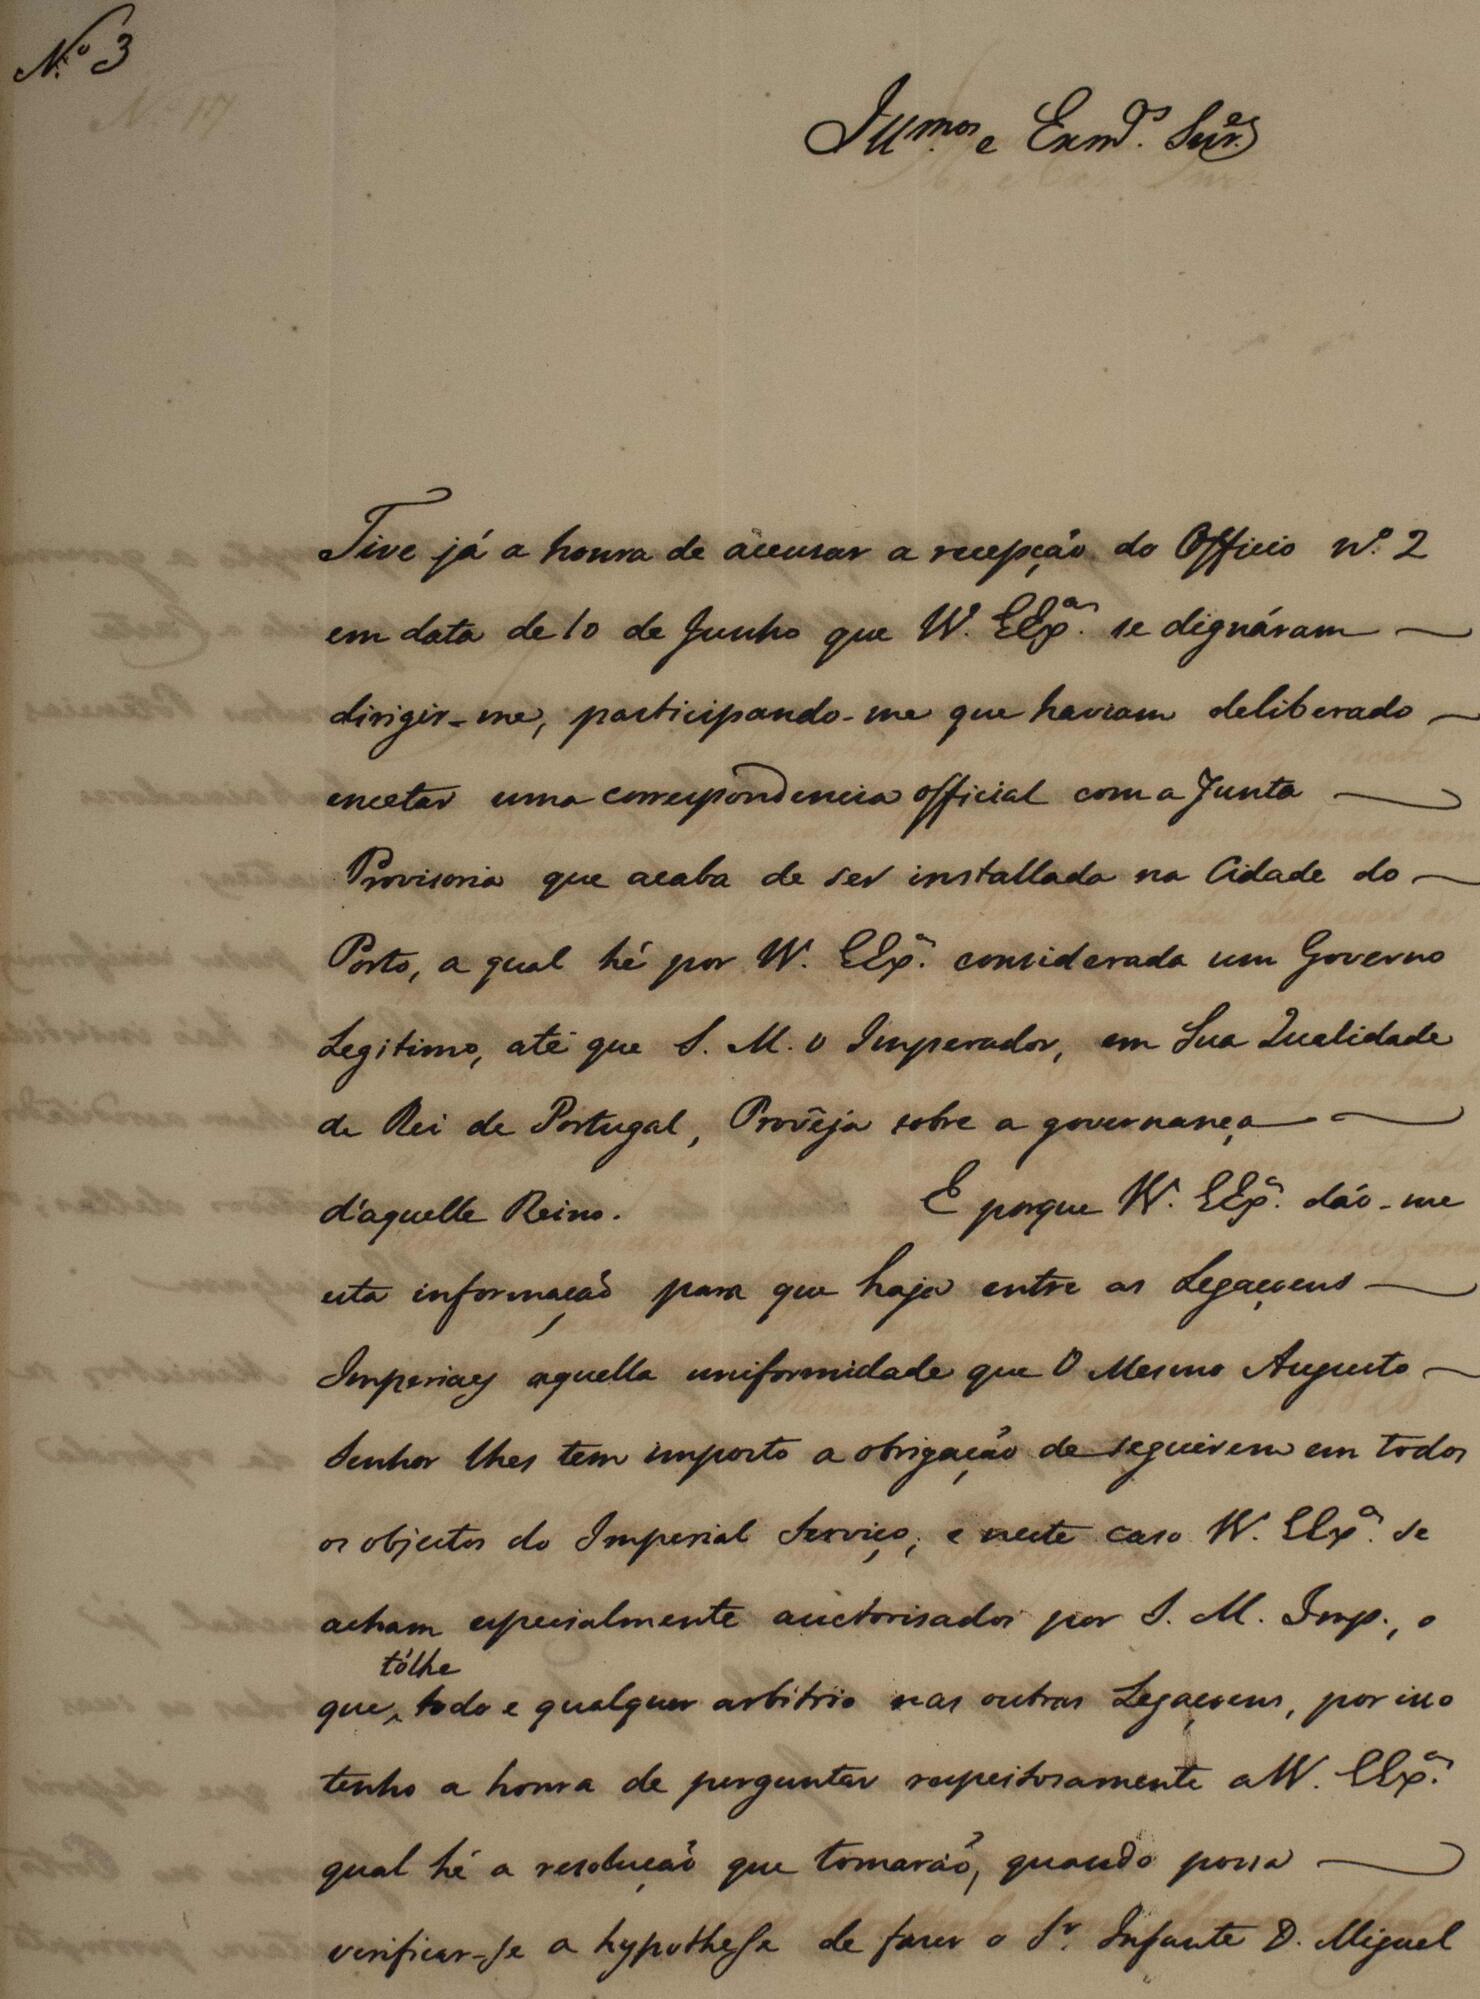 N.º 3
Ill.mos e Exmos. Snr.es
Tive já a honra de accusar a recepção do Officio nº. 2
em data de 10 de Junho que VV. EExas. se dignáram
dirigir-me, participando-me que haviam deliberado
encetar uma correspondencia official com a Junta
Provisoria que acaba de ser installada na Cidade do
Porto, a qual hé por VV. EExas. considerada um Governo
Legitimo, até que S. M. o Imperador, em Sua Qualidade
de Rei de Portugal, Provêja sobre a governança
d'aquelle Reino. E porque VV. EExas. dão-me
esta informação para que haja entre as Legaçoens
Imperiaes aquella uniformidade que O Mesmo Augusto
Senhor lhes tem imposto a obrigação de seguirem em todos
os objectos do Imperial Serviço, e neste caso VV. EExas. se
acham especialmente auctorisados por S. M. Imp., o
tólhe
que todo e qualquer arbitrio nas outras Legaçoens, por isso
tenho a honra de perguntar respeitosamente a VV. EExas.
qual hé a resolução que tomarão, quando possa
verificar-se a hypothese de fazer o Sr. Infante D. Miguel